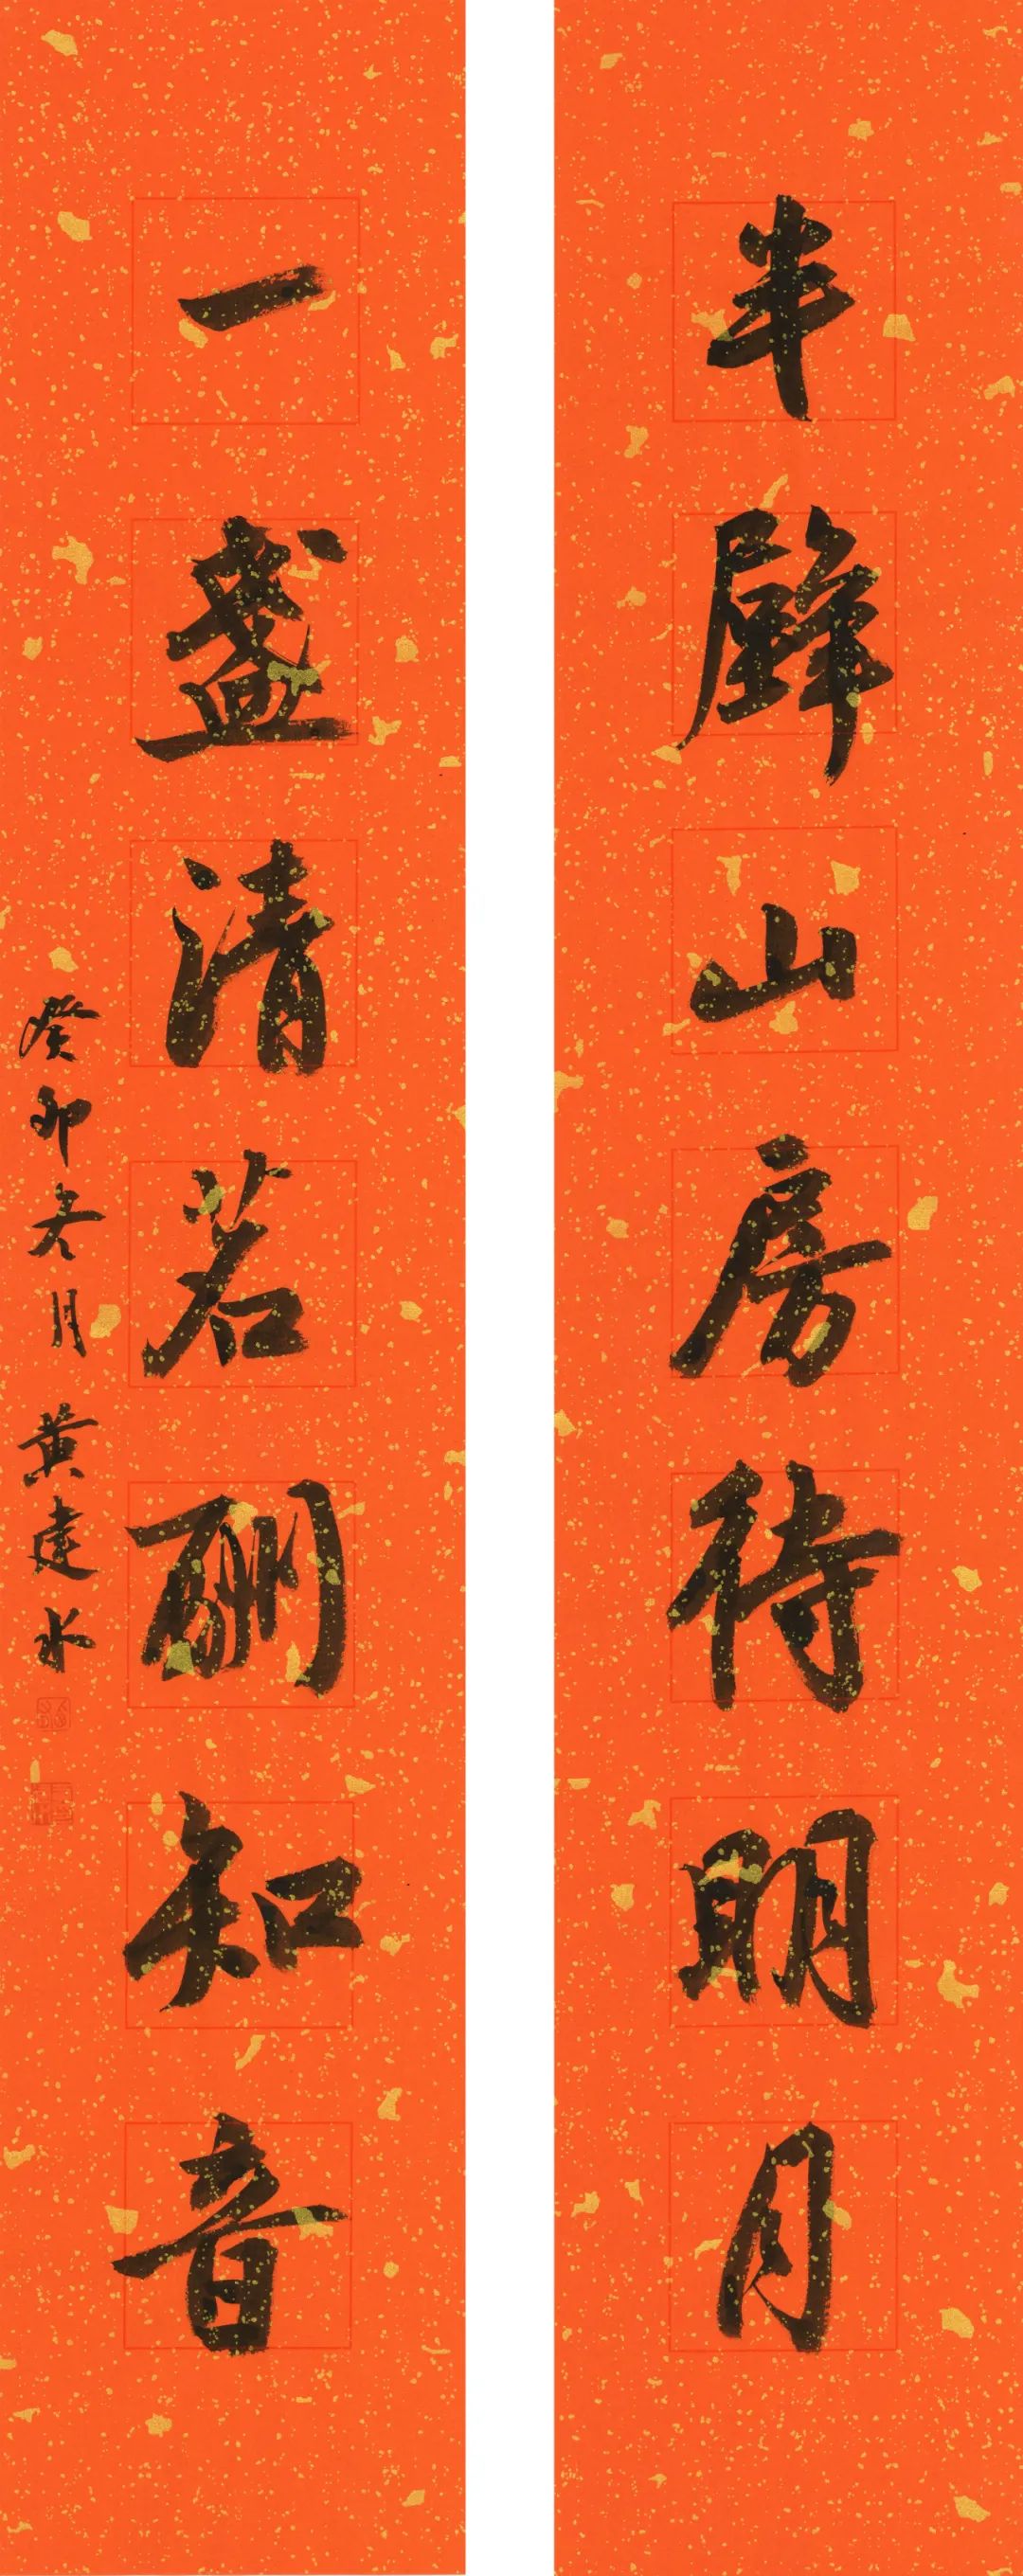 半壁山房待明月
一盏清茗酬知音
癸卯六月 黄建水